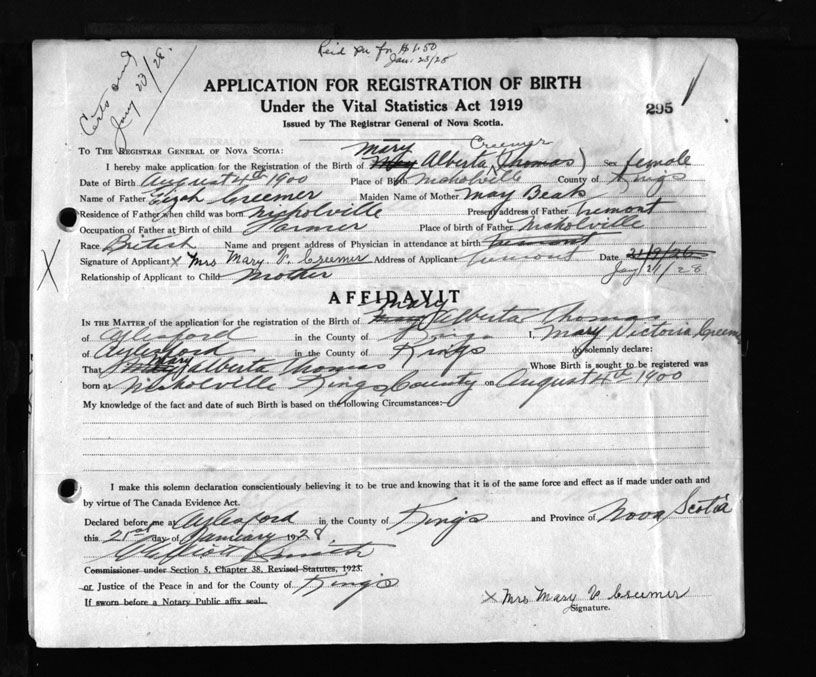 Jan. 25/28
Jany 23/28.
APPLICATION FOR REGISTRATION OF BIRTH
Under the Vital Statistics Act 1919
295
Issued by The Registrar General of Nova Scotia.
TO THE REGISTRAR GENERAL OF NOVA SCOTIA:
Mary Creemer
I hereby make application for the Registration of the Birth of May Alberta (Thomas) Sex female
Date of Birth August 4th 1900 Place of Birth Nicholville County of Kings
Name of Father Creemer Maiden Name of Mother May Beals
Residence of Father when child was born Nicholville Present address of Father Tremont
Occupation of Father at Birth of child Farmer Place of birth of Father Nicholville
Race British Name and present address of Physician in attendance at birth Tremont
Signature of Applicant x Mrs Mary V. Creemer Address of Applicant Tremont Date 21/9/26
Jany 21/28
Relationship of Applicant to Child Mother
AFFIDAVIT
Mary
IN THE MATTER of the application for the registration of the Birth of Alberta Thomas
of Aylesford in the County of Kings I, Mary Victoria Creemer
of Aylesford in the County of Kings do solemnly declare:
Mary
That May Alberta Thomas Whose Birth is sought to be registered was
born at Nicholville Kings County on August 4th 1900
My knowledge of the fact and date of such Birth is based on the following Circumstances:—
I make this solemn declaration conscientiously believing it to be true and knowing that it is of the same force and effect as if made under oath and
by virtue of The Canada Evidence Act.
Declared before me at Aylesford in the County of Kings and Province of Nova Scotia
this 21st day of January 1928
Commissioner under Section 5, Chapter 38, Revised Statutes, 1923.
or Justice of the Peace in and for the County of Kings
If sworn before a Notary Public affix seal.
x Mrs Mary V Creemer
Signature.